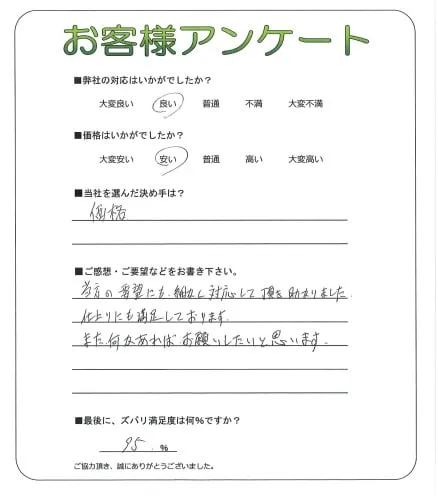 お客様アンケート
■弊社の対応はいかがでしたか？
大変良い 良い 普通 不満 大変不満
■価格はいかがでしたか？
大変安い 安い 普通 高い 大変高い
■当社を選んだ決め手は？
価格
■ご感想・ご要望などをお書き下さい。
当方の要望にも、細かく対応して頂き助かりました。
仕上りにも満足しております。
また何かあれば、お願いしたいと思います。
■最後に、ズバリ満足度は何％ですか？
95 %
ご協力頂き、誠にありがとうございました。